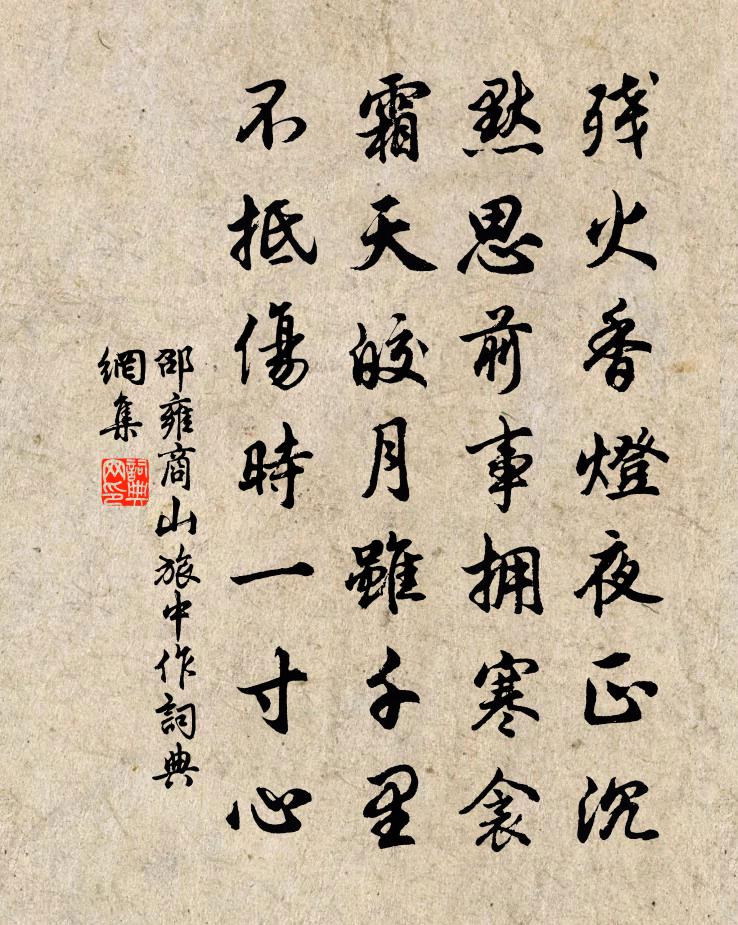 残火香燈夜正沉
默思前事擁寒衾
霜天皎月雖千里
不抵傷時一寸心
邵雍商山旅中作詞典
網集
詞典
网印